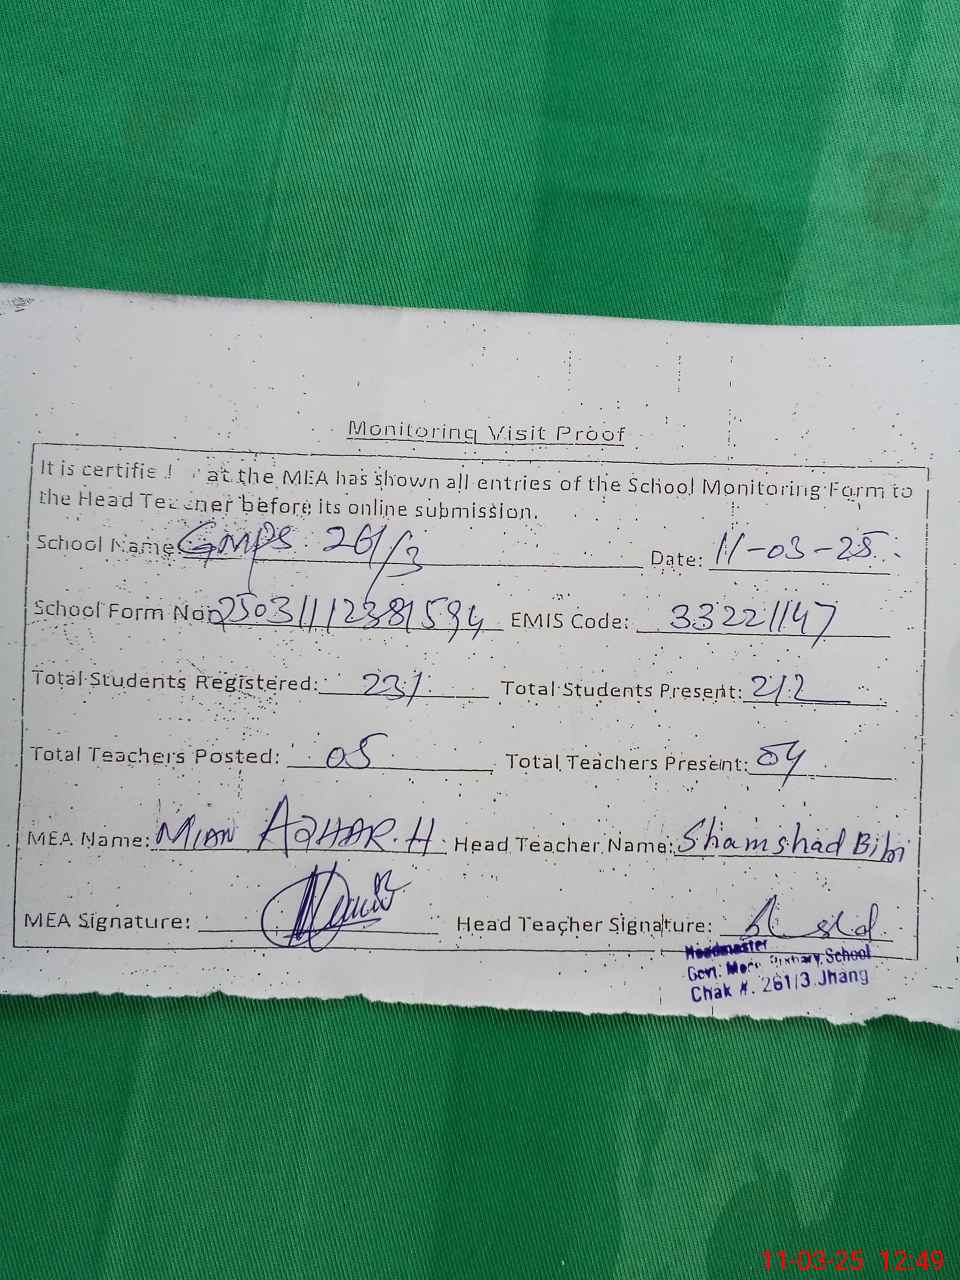 Monitoring Visit Proof
It is certified that the MEA has shown all entries of the School Monitoring Form to
the Head Teacher before its online submission.
School Name GMPS 261/3 Date: 11-03-25
School Form No: 250311112381594 EMIS Code: 33221147
Total Students Registered: 231 Total Students Present: 212
Total Teachers Posted: 05 Total Teachers Present: 04
MEA Name: MIAN AZHAR.H Head Teacher Name: Shamshad Bibi
MEA Signature: Head Teacher Signature:
Headmaster
Govt. Primary School
Chak #. 261/3 Jhang
11-03-25 12:49